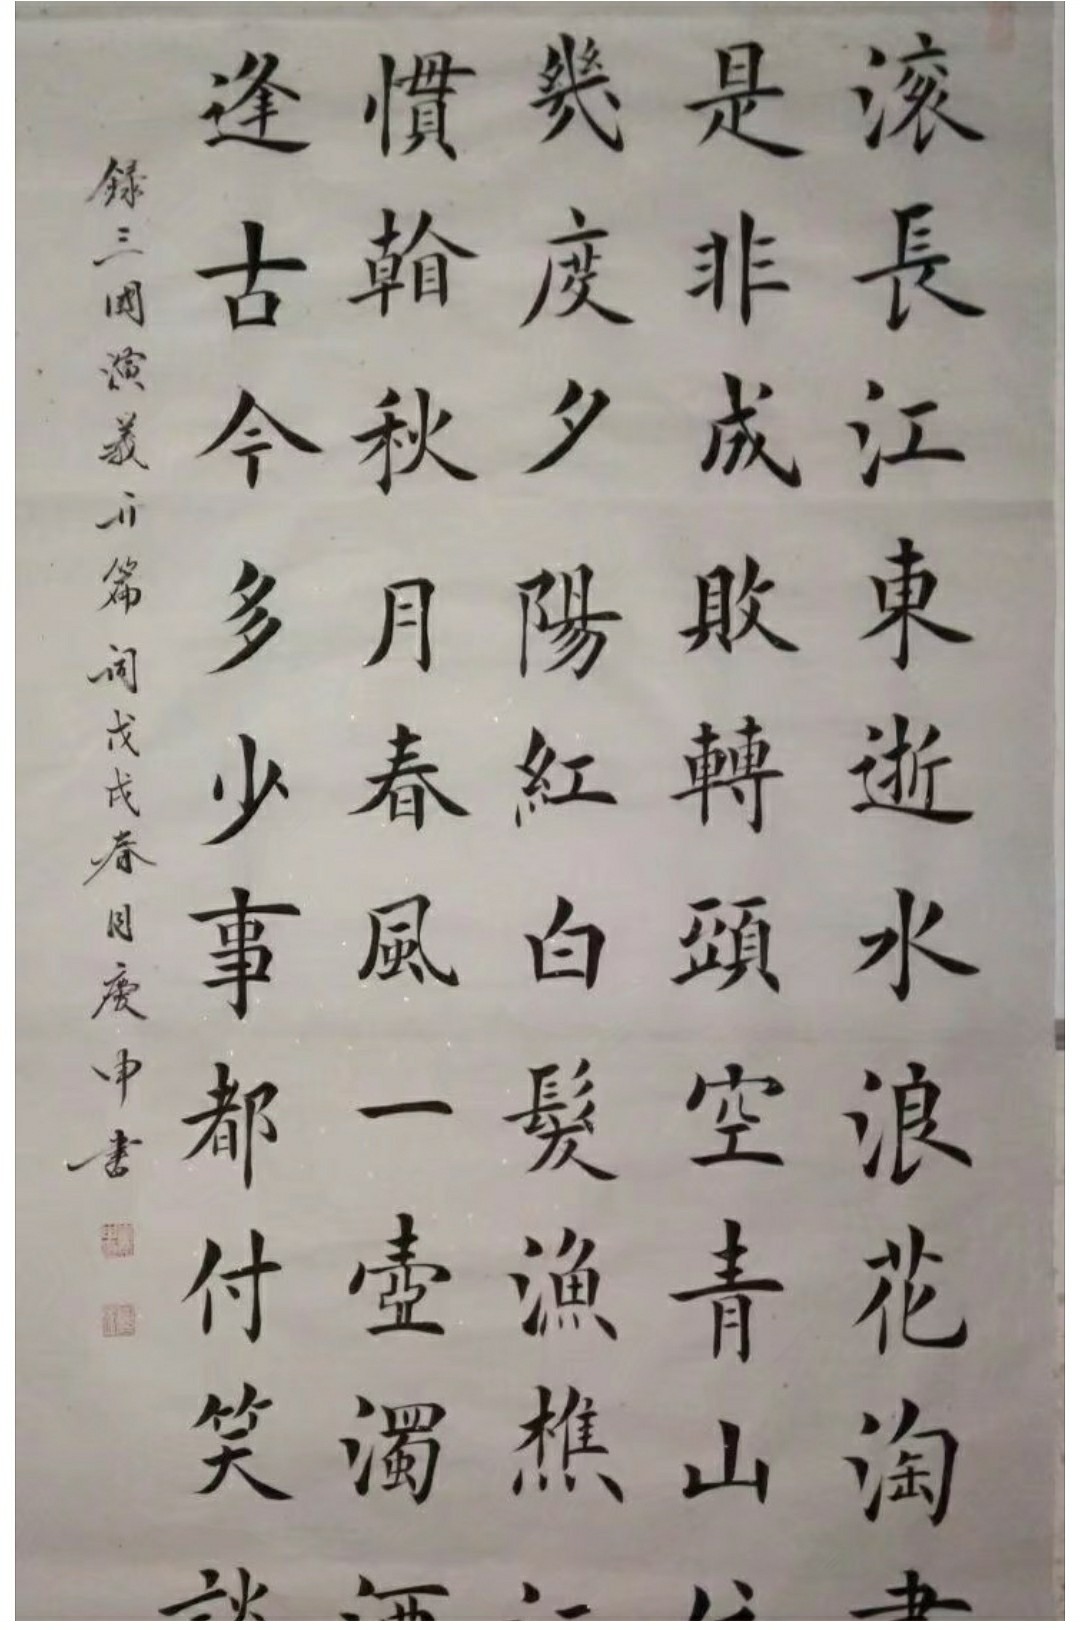 滚長江東逝水浪花淘盡
是非成敗轉頭空青山依
幾度夕陽紅白髮漁樵江
慣看秋月春風一壺濁酒
逢古今多少事都付笑談
錄三國演義開篇詞戊戌春月慶申书